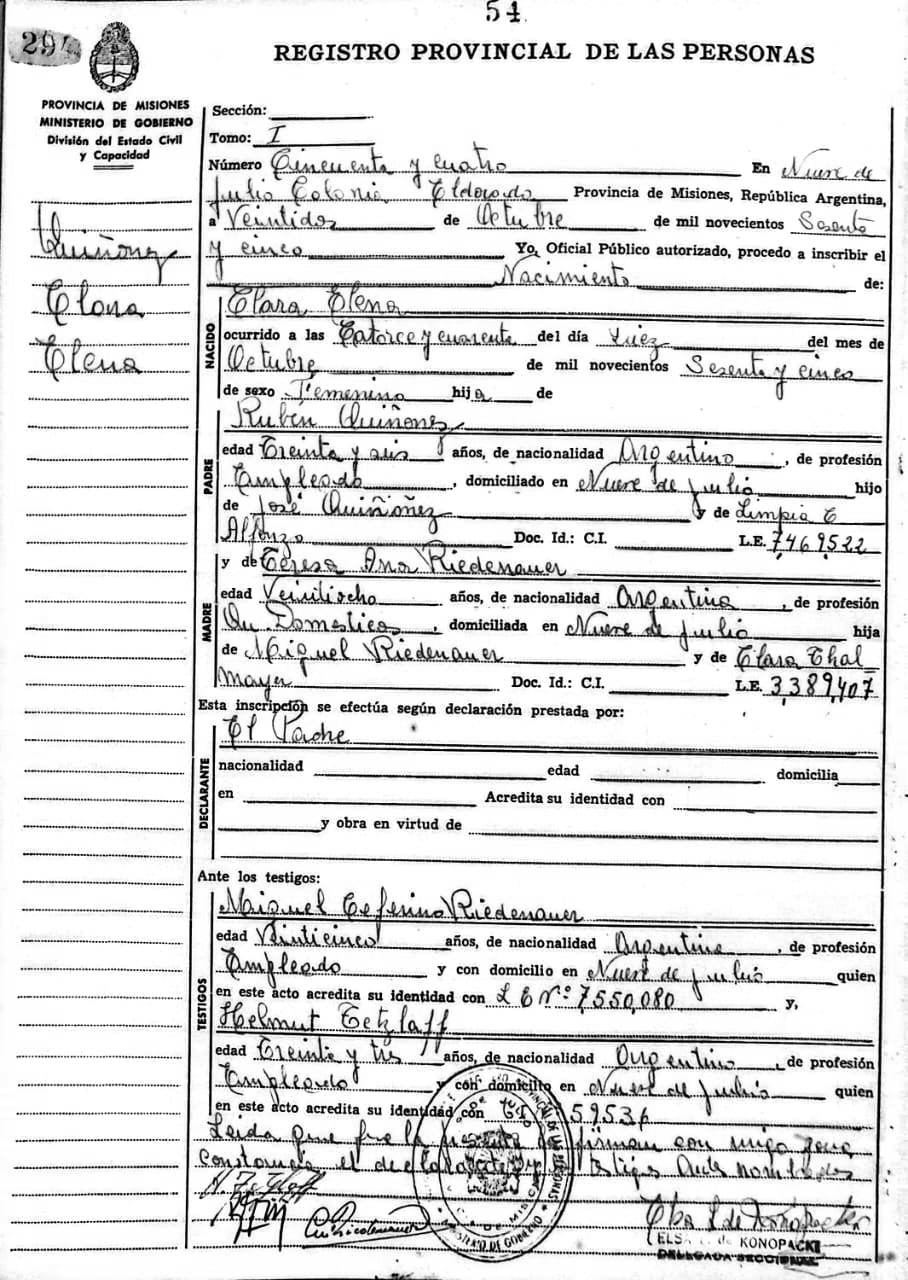 54
294
REGISTRO PROVINCIAL DE LAS PERSONAS
PROVINCIA DE MISIONES
MINISTERIO DE GOBIERNO
División del Estado Civil
y Capacidad
Quiñonez
Clara
Elena
Sección:
Tomo: I
Número Cincuenta y cuatro En Nueve de
Julio Colonia Eldorado Provincia de Misiones, República Argentina,
a Veintidos de Octubre de mil novecientos Sesenta
y cinco Yo, Oficial Público autorizado, procedo a inscribir el
Nacimiento de:
NACIDO
Clara Elena
ocurrido a las Catorce y cuarenta del día Diez del mes de
Octubre de mil novecientos Sesenta y cinco
de sexo Femenino hija de
PADRE
Rubén Quiñonez
edad Treinta y seis años, de nacionalidad Argentino, de profesión
Empleado, domiciliado en Nueve de Julio hijo
de José Quiñoñez y de Limpia E
Alfonzo Doc. Id.: C.I. L.E. 7469522
MADRE
y de Teresa Ana Riedenauer
edad Veintiocho años, de nacionalidad Argentina, de profesión
Qu Domesticos, domiciliada en Nueve de Julio hija
de Miguel Riedenauer y de Clara Thal
Mayer Doc. Id.: C.I. L.E. 3,389,407
Esta inscripción se efectúa según declaración prestada por:
DECLARANTE
El Padre
nacionalidad edad domicilia
en Acredita su identidad con
y obra en virtud de
Ante los testigos:
TESTIGOS
Miguel Ceferino Riedenauer
edad Veinticinco años, de nacionalidad Argentino, de profesión
Empleado y con domicilio en Nueve de Julio quien
en este acto acredita su identidad con L E Nº: 7,550,080 y,
Helmut Tetzlaff
edad Treinta y tres años, de nacionalidad Argentino, de profesión
Empleado y con domicilio en Nueve de Julio quien
en este acto acredita su identidad con 59536
Leida que fue la presente firman con migo para
constancia el declarante y testigos nombrados
H. Tetzlaff
Elsa L de Konopacki
ELSA L. de KONOPACKI
DELEGADA SECCIONAL